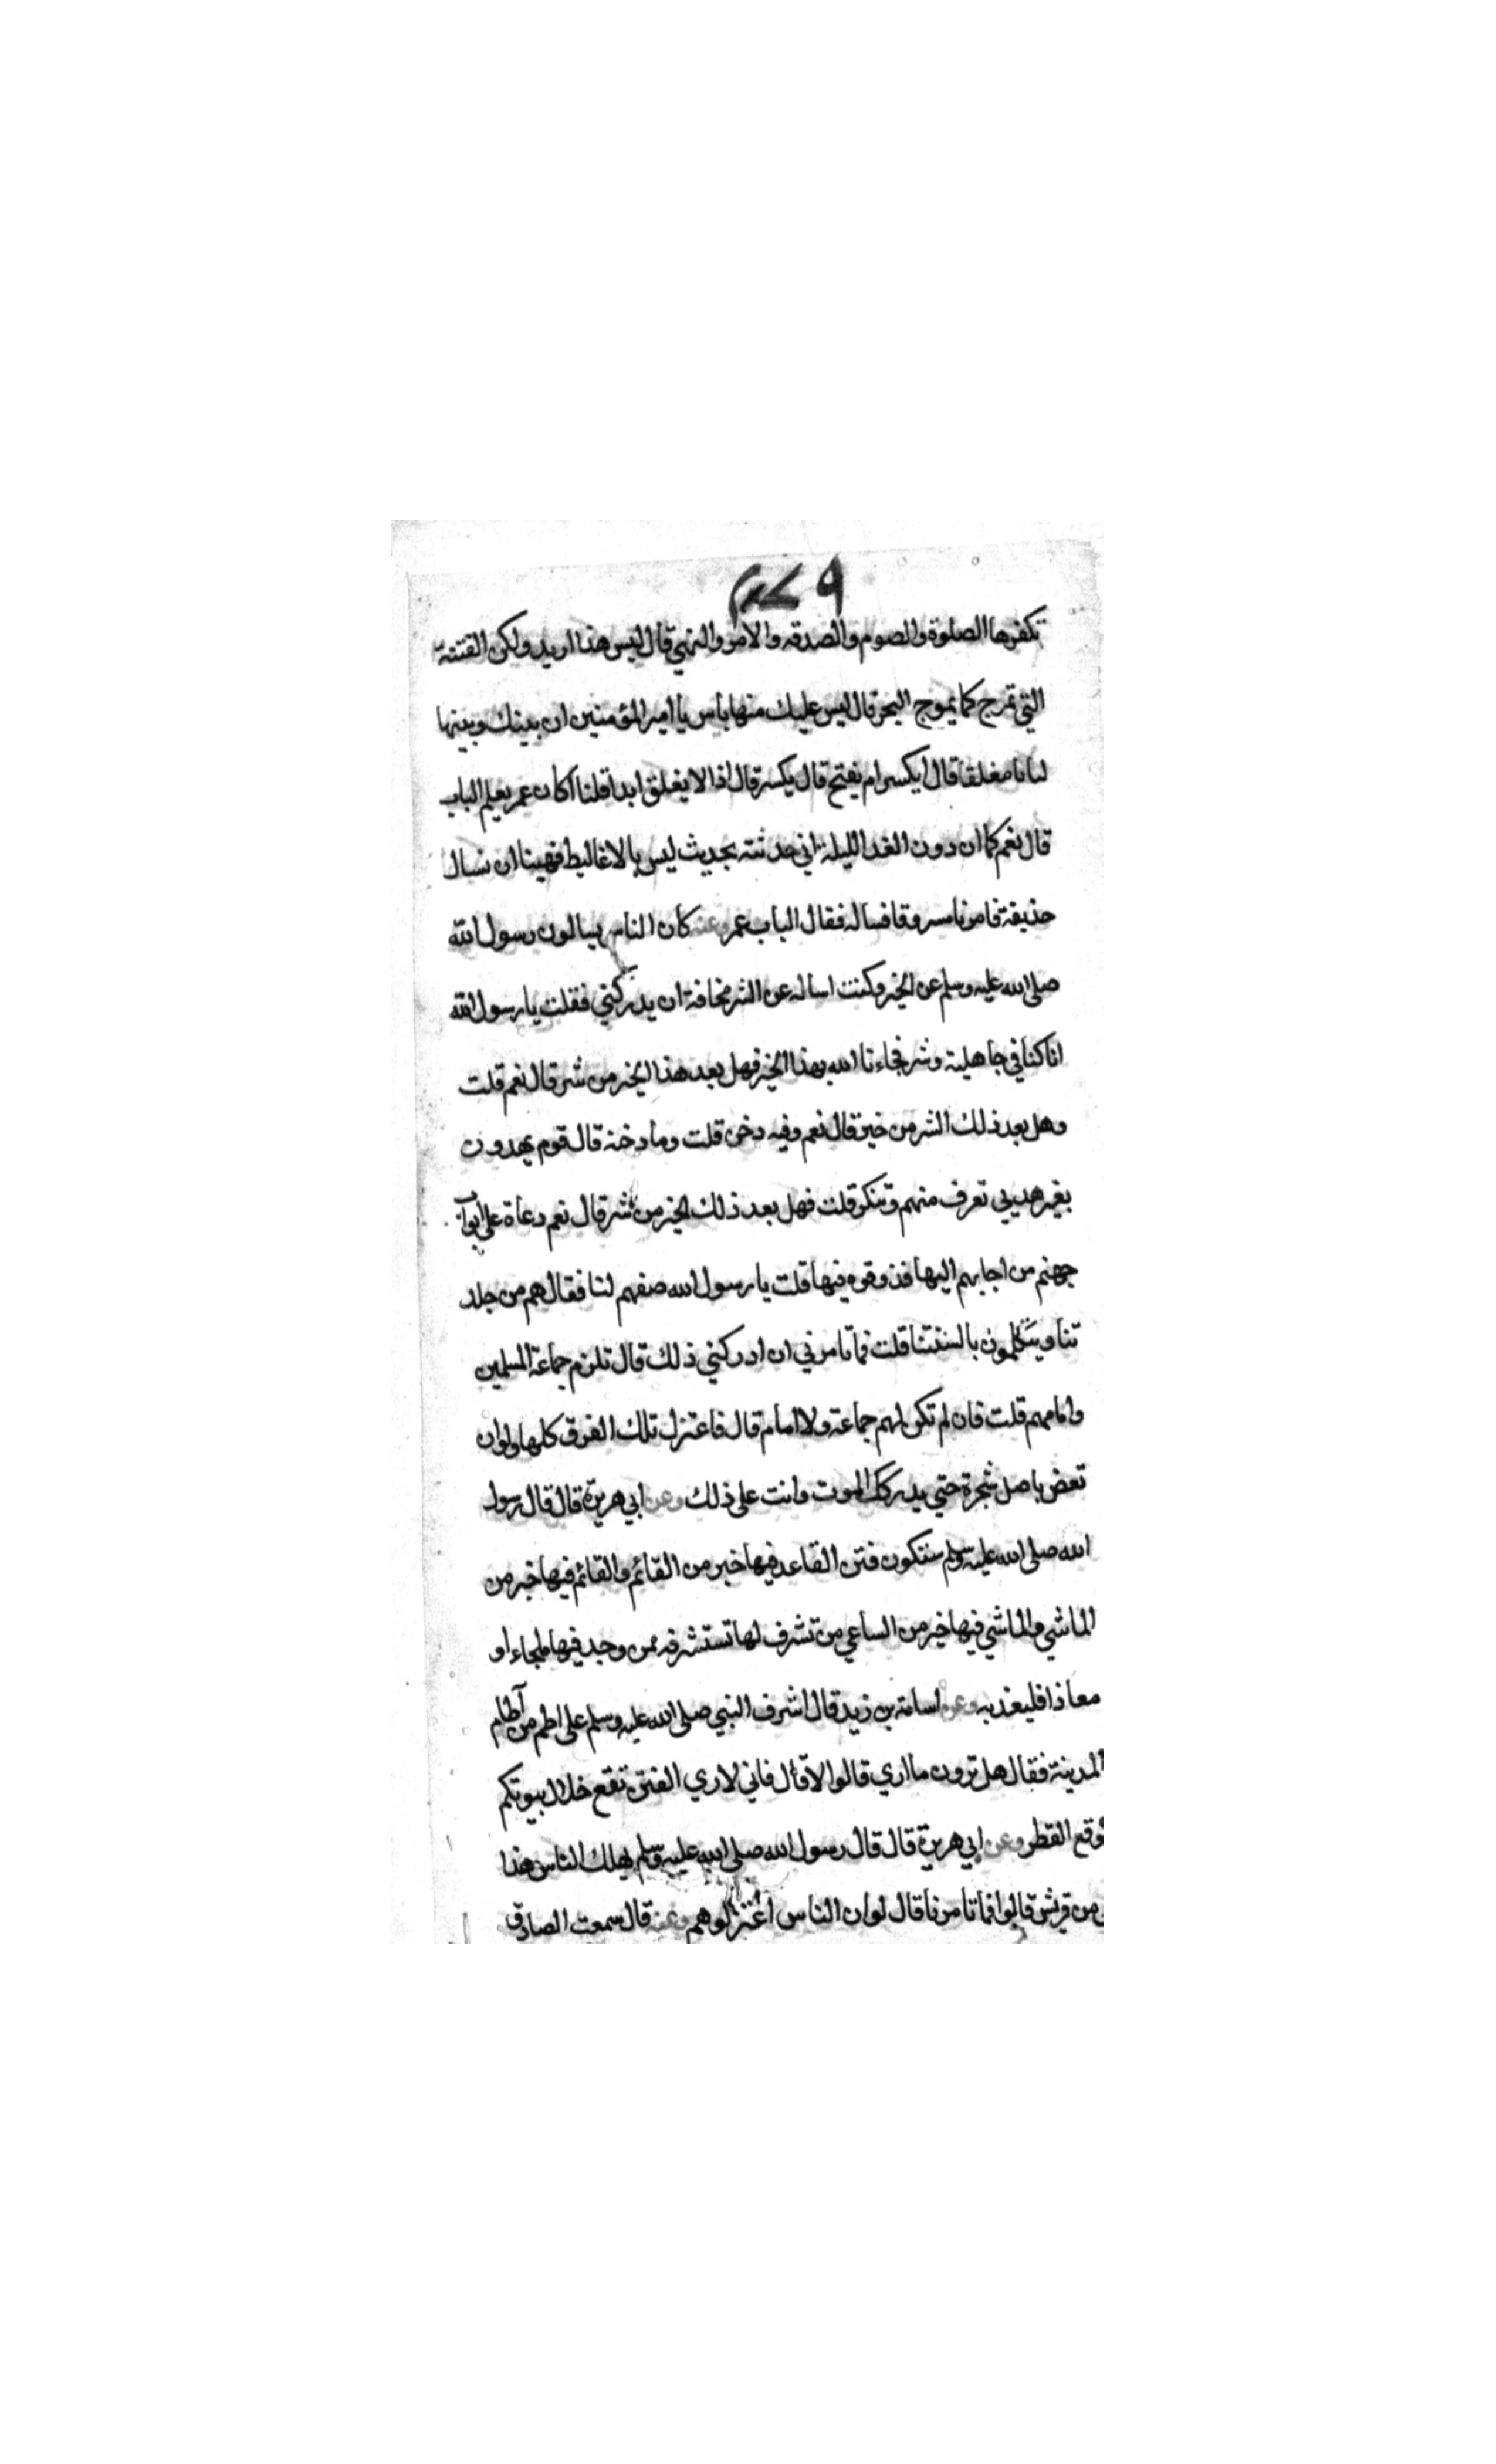 تكفرها الصلوة والصوم والصدقه والامر والنهي قال ليس هذا اريد ولكن الفتنة
التي تمرج كما يموج البحر قال ليس عليك منها باس يا امير المؤمنين ان بينك وبينها
لبابا مغلقا قال ايكسر ام يفتح قال يكسر قال اذا لا يغلق ابدا قلنا اكان عمر يعلم الباب
قال نعم كما ان دون الغد الليلة اني حدثته بحديث ليس بالاغاليط فهبنا ان نسال
حذيفة فامرنا مسروقا فساله فقال الباب عمر وعنه كان الناس يسالون رسول الله
صلى الله عليه وسلم عن الخير وكنت اساله عن الشر مخافة ان يدركني فقلت يا رسول الله
انا كنا في جاهلية وشر فجاءنا الله بهذا الخير فهل بعد هذا الخير من شر قال نعم قلت
وهل بعد ذلك الشر من خير قال نعم وفيه دخن قلت وما دخنه قال قوم يهدون
بغير هديي تعرف منهم وتنكر قلت فهل بعد ذلك الخير من شر قال نعم دعاة على ابواب
جهنم من اجابهم اليها قذفوه فيها قلت يا رسول الله صفهم لنا فقال هم من جلد
تنا ويتكلمون بالسنتنا قلت فما تامرني ان ادركني ذلك قال تلزم جماعة المسلمين
وامامهم قلت فان لم تكن لهم جماعة ولا امام قال فاعتزل تلك الفرق كلها ولو ان
تعض باصل شجرة حتي يدركك الموت وانت على ذلك وعن ابي هريرة قال قال رسول
الله صلى الله عليه وسلم ستكون فتن القاعد فيها خير من القائم والقائم فيها خير من
الماشي والماشي فيها خير من الساعي من تشرف لها تستشرفه فمن وجد فيها ملجاء او
معاذا فليعذ به وعن اسامة بن زيد قال اشرف النبي صلى الله عليه وسلم على اطم من آطام
المدينة فقال هل ترون ما اري قالوا لا قال فاني لاري الفتن تقع خلال بيوتكم
كوقع القطر وعن ابي هريرة قال قال رسول الله صلى الله عليه وسلم يهلك الناس هذا
من قريش قالوا فما تامرنا قال لو ان الناس اعتزلوهم وعنه قال سمعت الصادق